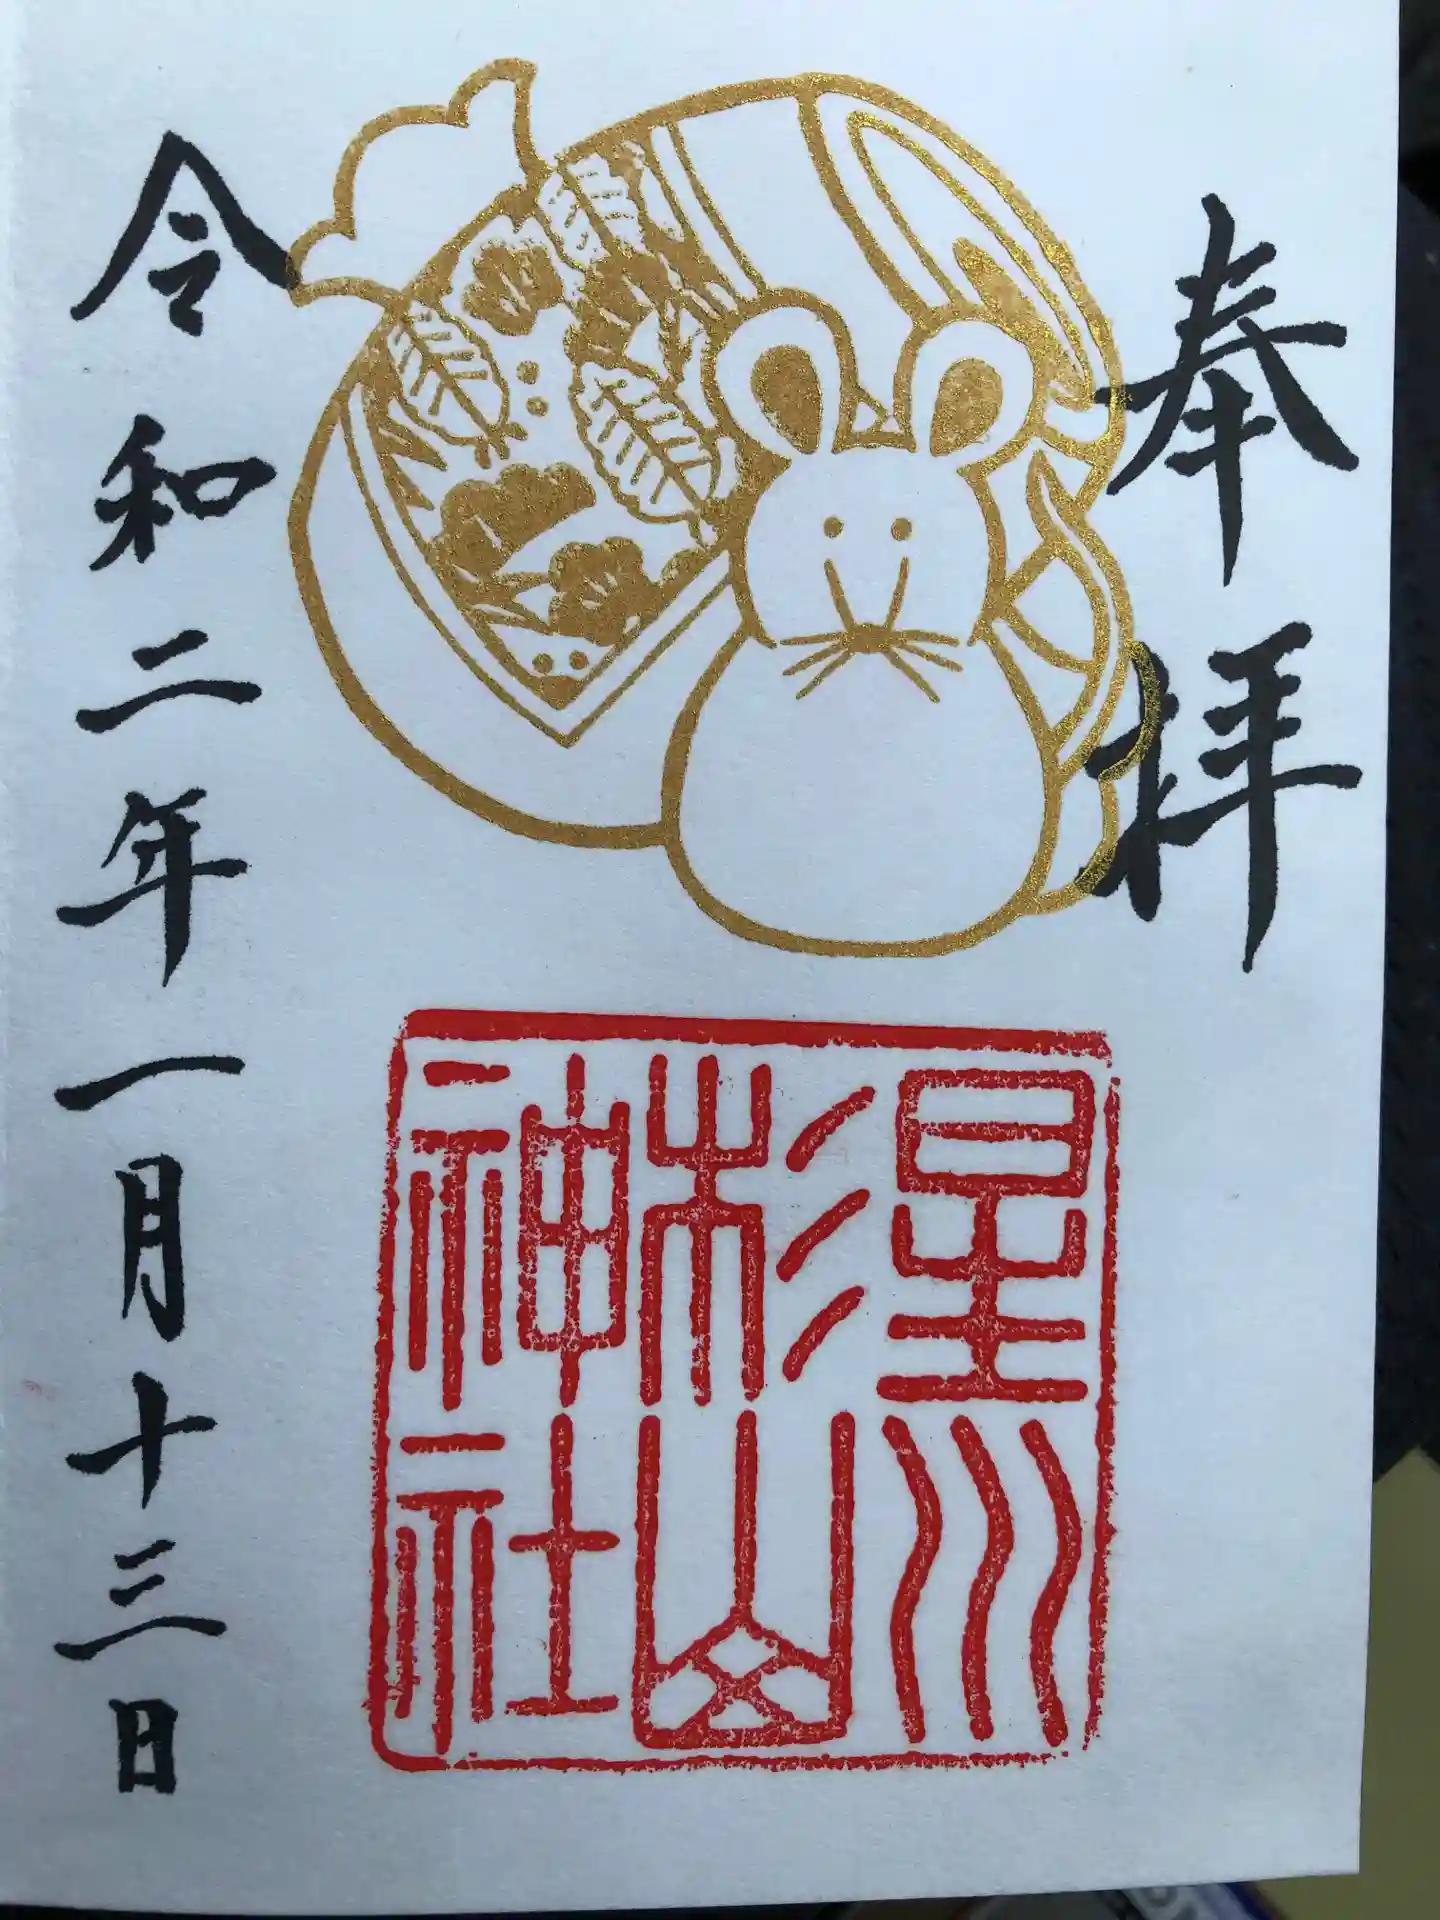 奉拝
星川
杉山
神社
令和二年一月十三日